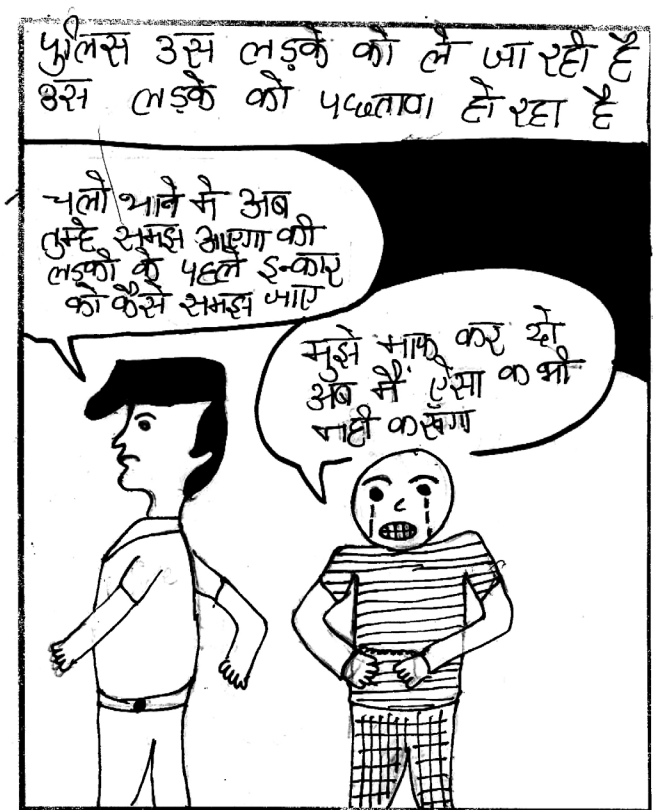 पुलिस उस लड़के को ले जा रही है
उस लड़के को पछतावा हो रहा है
चलो थाने मे अब
तुम्हे समझ आएगा की
लड़की के पहले इन्कार
को कैसे समझा जाए
मुझे माफ कर दो
अब मैं ऐसा कभी
नही करूँगा